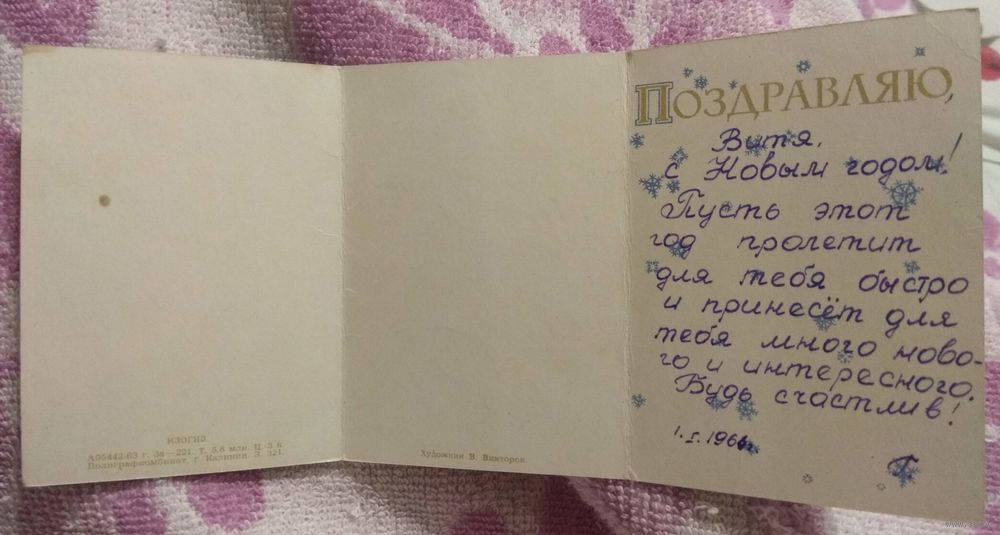 ИЗОГИЗ
А05442-63 г. Зак-221. Т. 5,6 млн. Ц. 3 к.
Полиграфкомбинат, г. Калинин. З. 321.
Художник В. Викторов.
ПОЗДРАВЛЯЮ,
Витя,
с Новым годом!
Пусть этот
год пролетит
для тебя быстро
и принесёт для
тебя много ново-
го и интересного.
Будь счастлив!
1.I.1966г.
Г